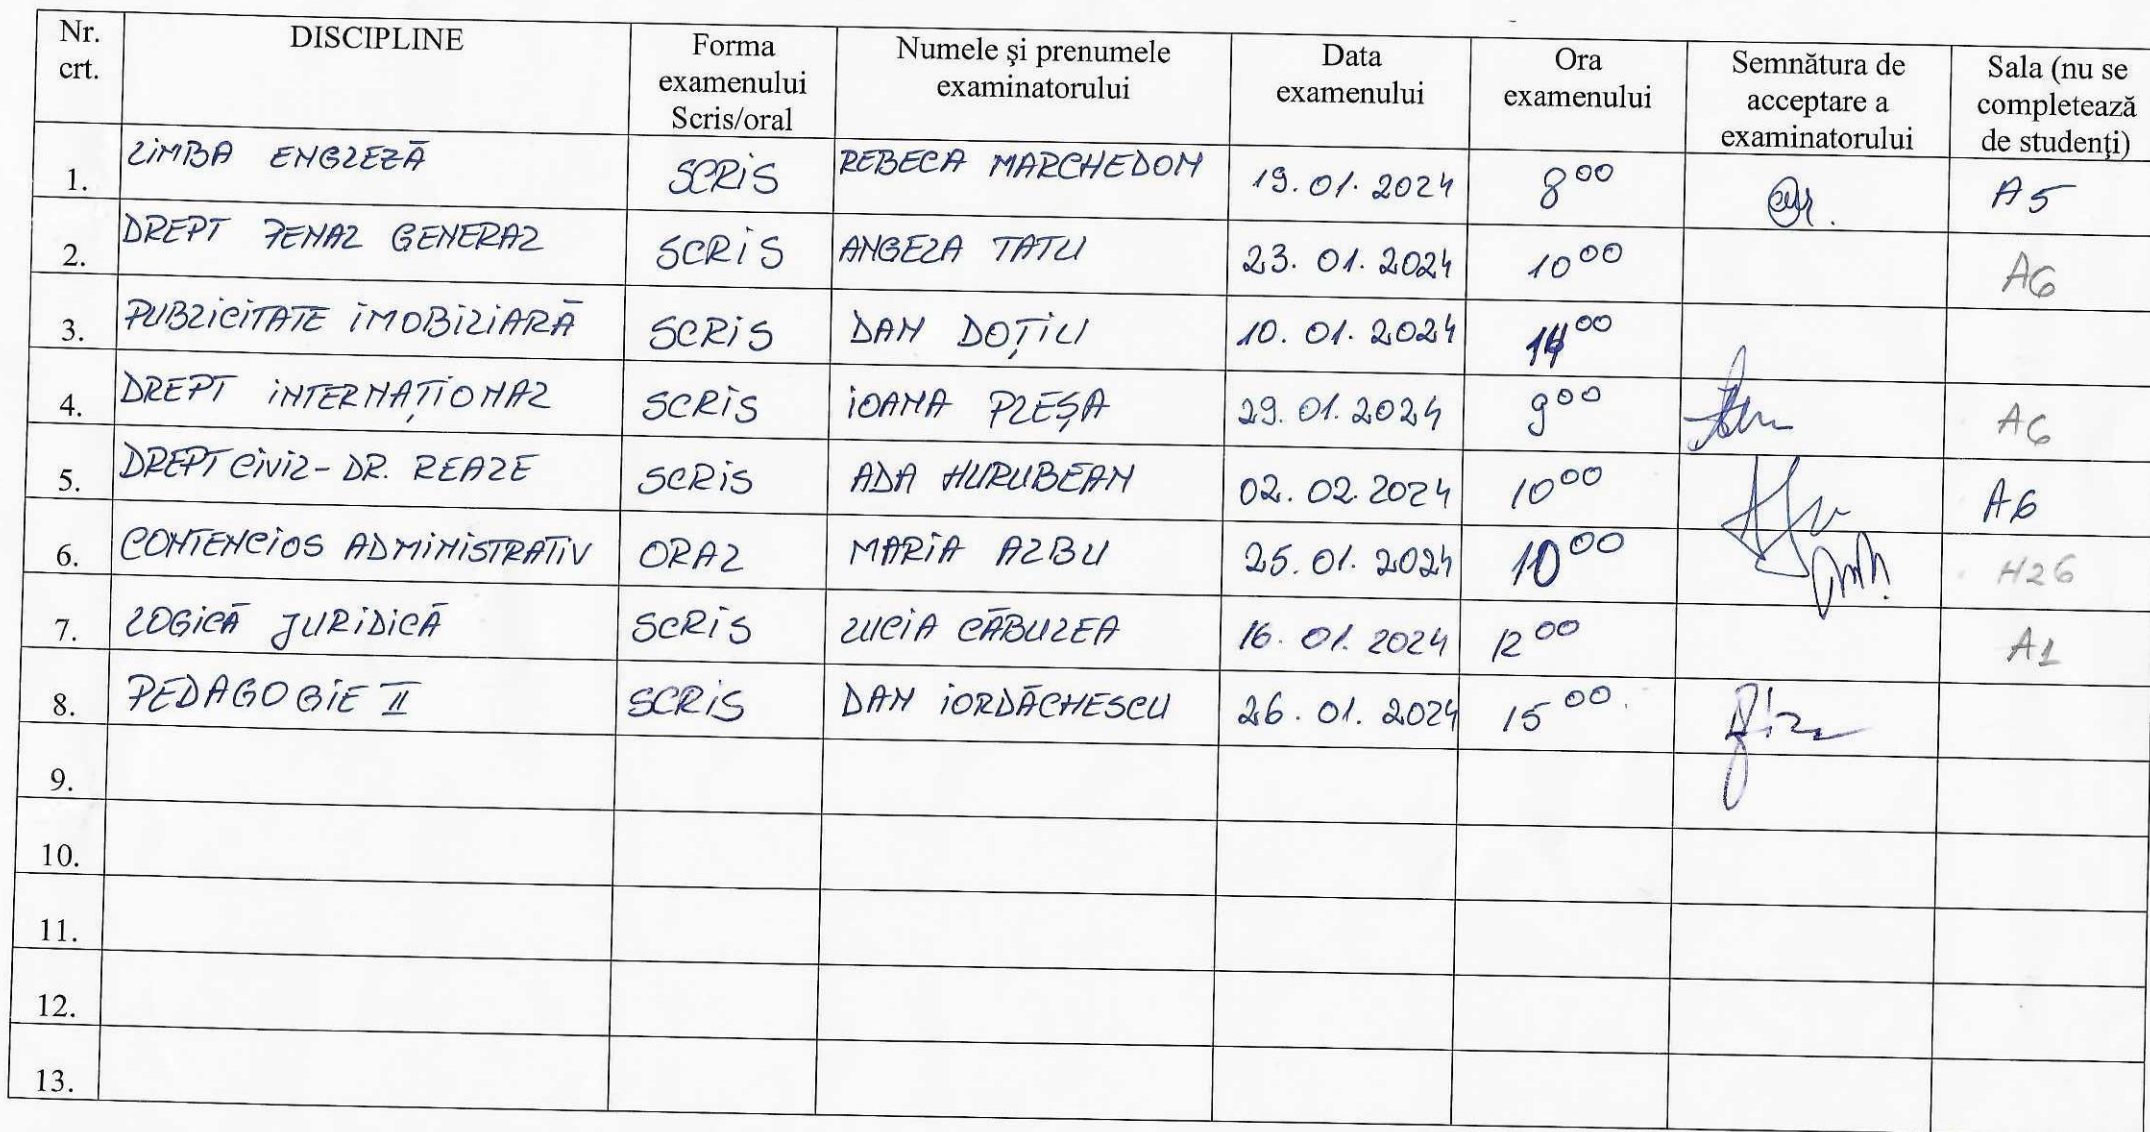 Nr. crt. DISCIPLINE Forma examenului Scris/oral Numele şi prenumele examinatorului Data examenului Ora examenului Semnătura de acceptare a examinatorului Sala (nu se completează de studenţi)
1. LIMBA ENGLEZĂ SCRIS REBECA MARCHEDON 19.01.2024 8⁰⁰ A5
2. DREPT PENAL GENERAL SCRIS ANGELA TATU 23.01.2024 10⁰⁰ A6
3. PUBLICITATE IMOBILIARĂ SCRIS DAN DOȚIU 10.01.2024
4. DREPT INTERNAȚIONAL SCRIS IOANA PLEȘA 29.01.2024 9⁰⁰ A6
5. DREPT CIVIL - DR. REALE SCRIS ADA HURUBEAN 02.02.2024 10⁰⁰ A6
6. CONTENCIOS ADMINISTRATIV ORAL MARIA ALBU 25.01.2024 10⁰⁰ H26
7. LOGICĂ JURIDICĂ SCRIS LUCIA CĂBULEA 16.01.2024 12⁰⁰ A1
8. PEDAGOGIE II SCRIS DAN IORDĂCHESCU 26.01.2024 15⁰⁰
9.
10.
11.
12.
13.